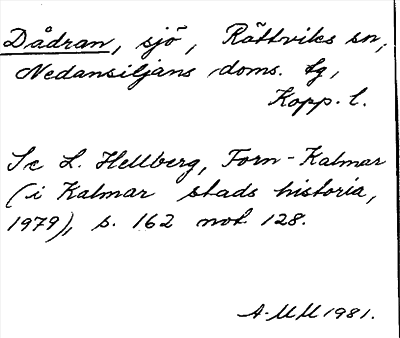 Dådran, sjö, Rättviks sn,
Nedansiljans doms. tg,
Kopp. l.
Se L. Hellberg, Forn-Kalmar
(i Kalmar stads historia,
1979), s. 162 not 128.
A-MM 1981.